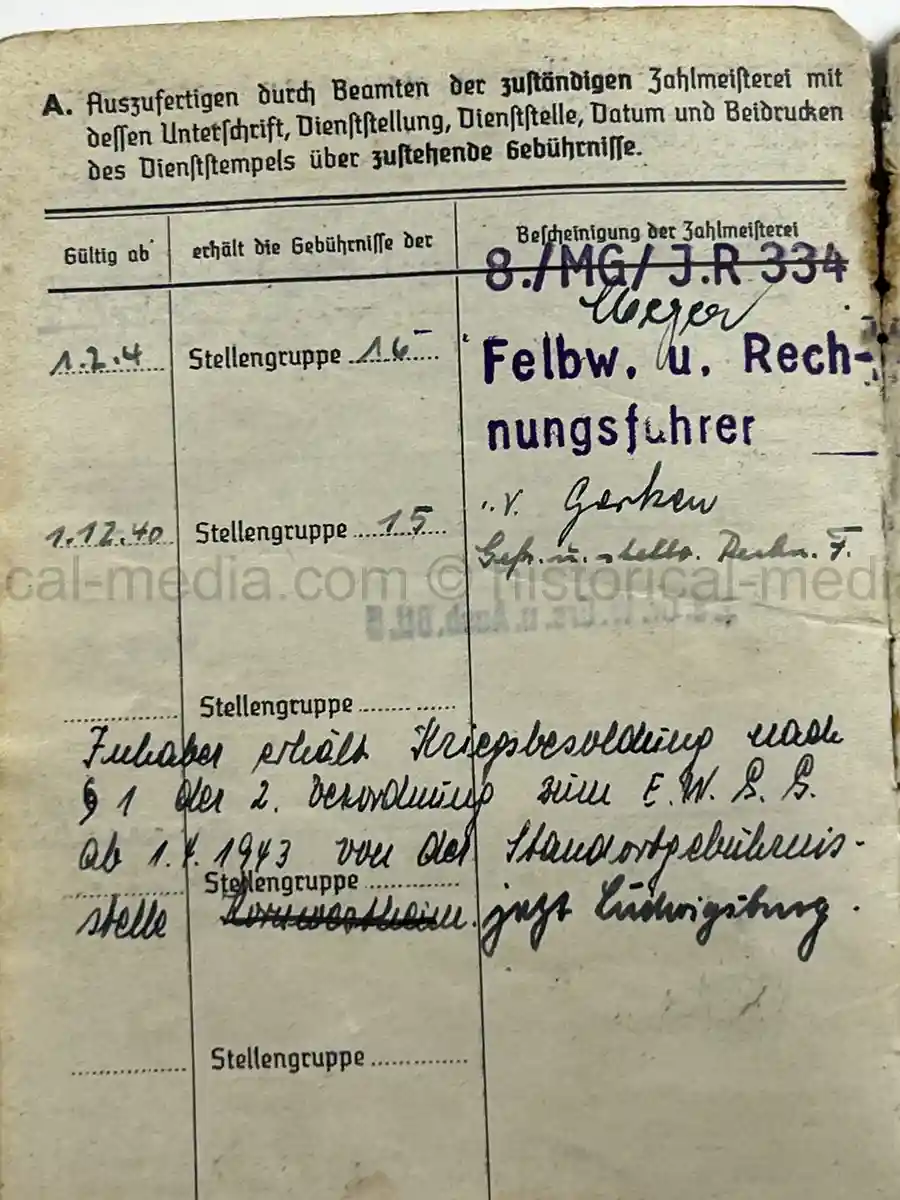 A. Auszufertigen durch Beamten der zuständigen Zahlmeisterei mit
dessen Unterschrift, Dienststellung, Dienststelle, Datum und Beidrucken
des Dienststempels über zustehende Gebührnisse.
Gültig ab
erhält die Gebührnisse der
Bescheinigung der Zahlmeisterei
8./MG/J.R 334
1.2.4 Stellengruppe 16
Felbw. u. Rech-
nungsfuhrer
1.12.40 Stellengruppe 15
i.V. Gerken
Gefr. u. stellv. Rechn. F.
cal-media.com © historical-medi
Stellengruppe
Inhaber erhält Kriegsbesoldung nach
§ 1 der 2. Verordnung zum E.W.G.G.
ab 1.4.1943 von der Standortgebührnis-
Stellengruppe
stelle Kornwestheim. jetzt Ludwigsburg.
Stellengruppe